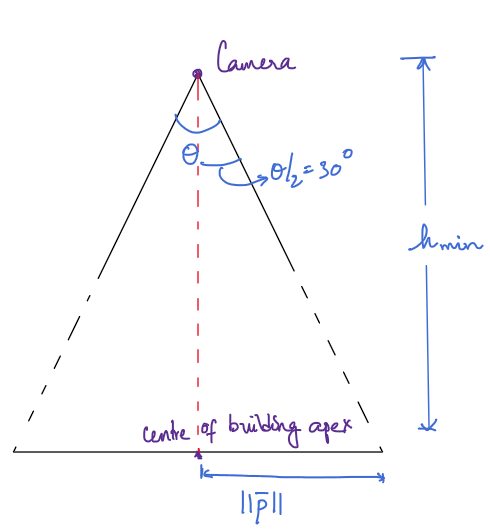 Camera
θ
θ/2 = 30°
hmin
centre of building apex
||p̄||